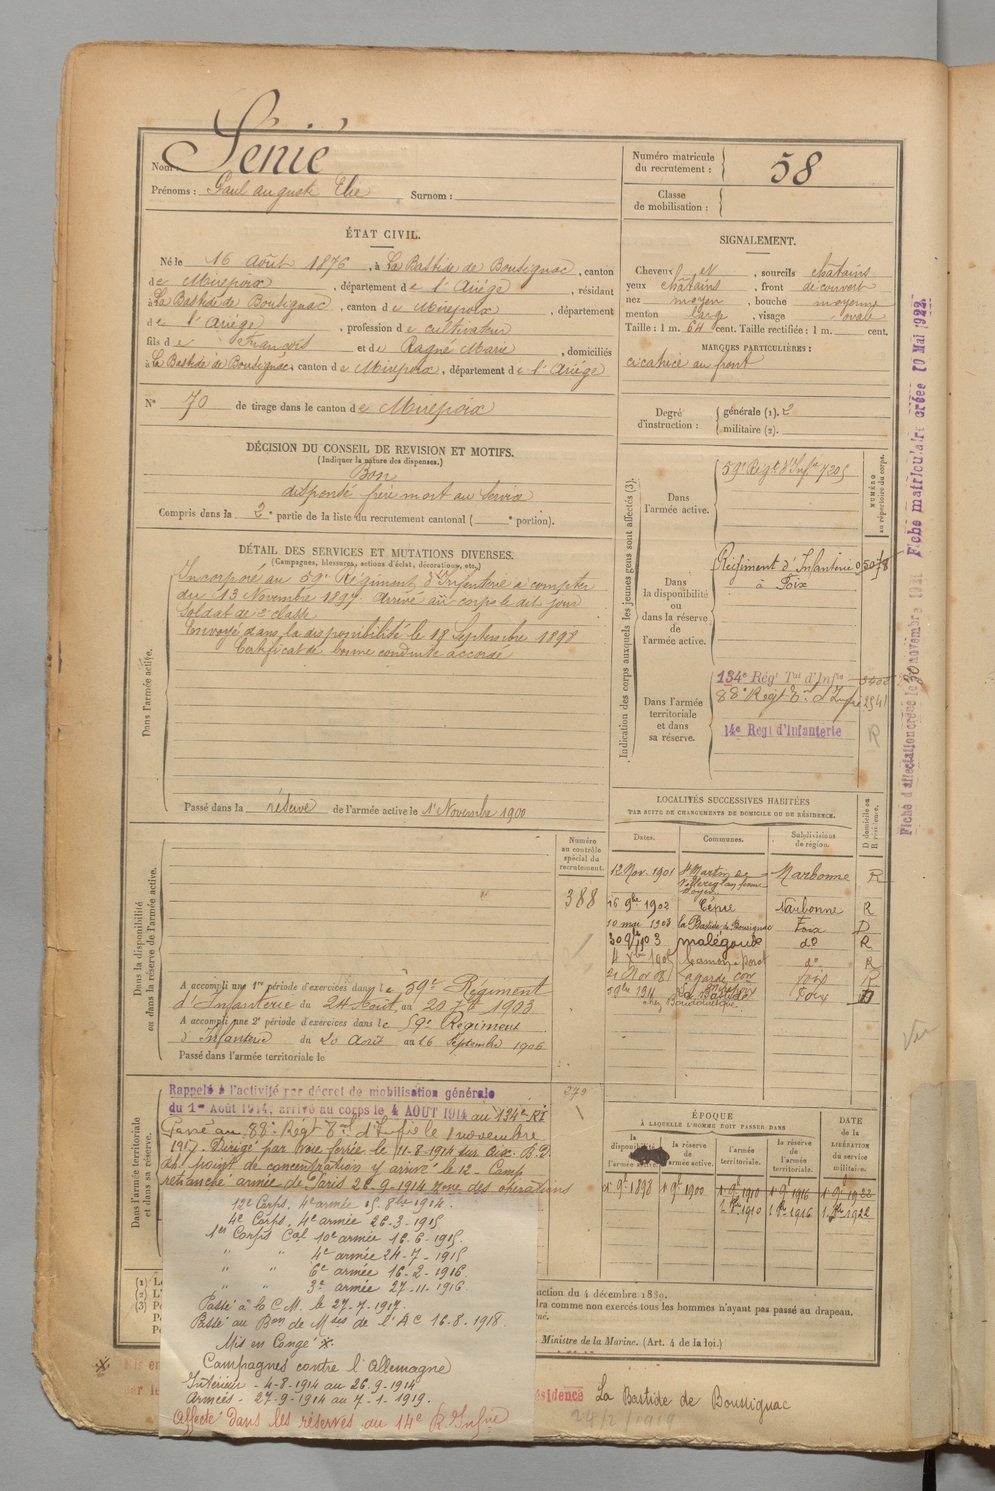 Nom : Sénié
Prénoms : Paul Auguste Elie Surnom :
Numéro matricule du recrutement : 58
Classe de mobilisation :
ÉTAT CIVIL.
Né le 16 Août 1876, à La Bastide de Bousignac, canton
de Mirepoix, département de l'Ariège, résidant
à La Bastide de Bousignac, canton de Mirepoix, département
de l'Ariège, profession de cultivateur
fils de François et de Ragné Marie, domiciliés
à La Bastide de Bousignac, canton de Mirepoix, département de l'Ariège
N° 70 de tirage dans le canton de Mirepoix
SIGNALEMENT.
Cheveux et, sourcils chatains
yeux chatains, front découvert
nez moyen, bouche moyenne
menton large, visage ovale
Taille : 1 m. 64 cent. Taille rectifiée : 1 m. cent.
MARQUES PARTICULIÈRES :
cicatrice au front
Degré d'instruction : générale (1). 2
militaire (2).
DÉCISION DU CONSEIL DE REVISION ET MOTIFS.
(Indiquer la nature des dispenses.)
Bon
dispensé frère mort au service
Compris dans la 2e partie de la liste du recrutement cantonal ( e portion).
DÉTAIL DES SERVICES ET MUTATIONS DIVERSES.
(Campagnes, blessures, actions d'éclat, décorations, etc.)
Dans l'armée active.
Incorporé au 59e Régiment d'Infanterie à compter
du 13 Novembre 1897. Arrivé au corps le dit jour
Soldat de 2e classe
Envoyé dans la disponibilité le 18 Septembre 1898
Certificat de bonne conduite accordé
Passé dans la réserve de l'armée active le 1er Novembre 1900
Indication des corps auxquels les jeunes gens sont affectés (3).
NUMÉRO au répertoire du corps.
Dans l'armée active.
59e Régt d'Infrie 7205
Dans la disponibilité ou dans la réserve de l'armée active.
Régiment d'Infanterie
à Foix
Dans l'armée territoriale et dans sa réserve.
134e Régt Tal d'Infie
88e Régt Tal d'Infie 2541
14e Regt d'Infanterie R
Fiche d'affectation créée le 30 novembre Fiche matriculaire créée 10 Mai 1922
LOCALITÉS SUCCESSIVES HABITÉES
PAR SUITE DE CHANGEMENTS DE DOMICILE OU DE RÉSIDENCE.
Dates. Communes. Subdivisions de région. D domicile ou R résidence.
12 Nov. 1901 St Martin de Narbonne R
16 9bre 1902 Cépie Narbonne R
10 mai 1903 la Bastide de Bousignac Foix D
30 9bre 1903 Malégoude do R
do R
21 Nov 08 Lagarde Foix R
La Bastide Foix D
Numéro au contrôle spécial du recrutement.
388
Dans la disponibilité ou dans la réserve de l'armée active.
A accompli une 1re période d'exercices dans le 59e Régiment
d'Infanterie du 24 Août au 20 7bre 1903
A accompli une 2e période d'exercices dans le 59e Régiment
d'Infanterie du 20 Août au 26 Septembre 1906
Passé dans l'armée territoriale le
Dans l'armée territoriale et dans sa réserve.
Rappelé à l'activité par décret de mobilisation générale
du 1er Août 1914, arrivé au corps le 4 AOUT 1914 au 134e RI
Passé au 88e Régt Tal d'Infie le 1 novembre
1917. Dirigé par voie ferrée le 11-8-1914 sur
point de concentration y arrivé le 12 - Camp
retranché armée de Paris 26-9-1914 zone des opérations
12e Corps. 4e armée 15. 8bre 1914.
4e Corps. 4e armée 26-3-1915
1er Corps Cal 10e armée 16-6-1915.
" " 4e armée 24-7-1915
" " 6e armée 16-2-1916.
" " 3e armée 27-11-1916.
Passé à la C M. le 27-7-1917.
Passé au Bon de Mses de l'A C 16-8-1918.
Mis en Congé *.
Campagnes contre l'Allemagne
Intérieur - 4-8-1914 au 26-9-1914
Armées - 27-9-1914 au 7-1-1919.
Affecté dans les réserves au 14e R. Infrie
ÉPOQUE
À LAQUELLE L'HOMME DOIT PASSER DANS
la disponibilité de l'armée active. la réserve de l'armée active. l'armée territoriale. la réserve de l'armée territoriale.
DATE de la LIBÉRATION du service militaire.
1 9e 1898 1 9e 1900 1 9e 1910 1 9e 1916 1 9e 1922
1910 1916 1922
uction du 4 décembre 1889.
dra comme non exercés tous les hommes n'ayant pas passé au drapeau.
Ministre de la Marine. (Art. 4 de la loi.)
ésidence La Bastide de Bousignac
24/2/1919